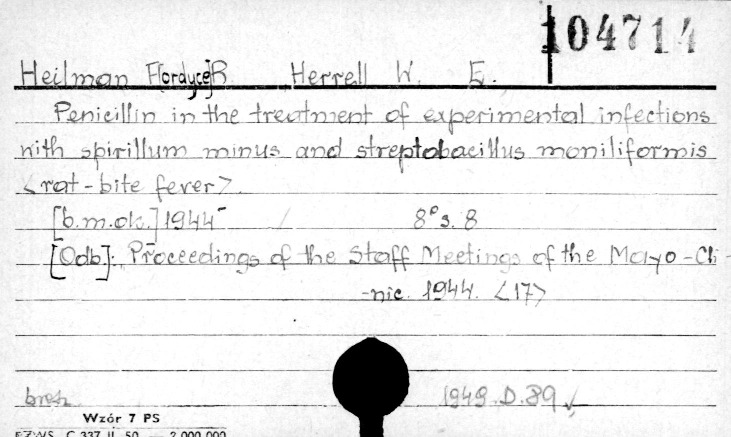 104714
Heilman F[ordyce]R. Herrell W. E.,
Penicillin in the treatment of experimental infections
with spirillum minus and streptobacillus moniliformis
<rat-bite fever>.
[b.m.ok.] 1944 8° s. 8
[Odb]: Proceedings of the Staff Meetings of the Mayo-Cli-
-nic. 1944. <17>
brosz. 1949.D.89
Wzór 7 PS
PZWS. C 337 II. 50. — 2.000.000